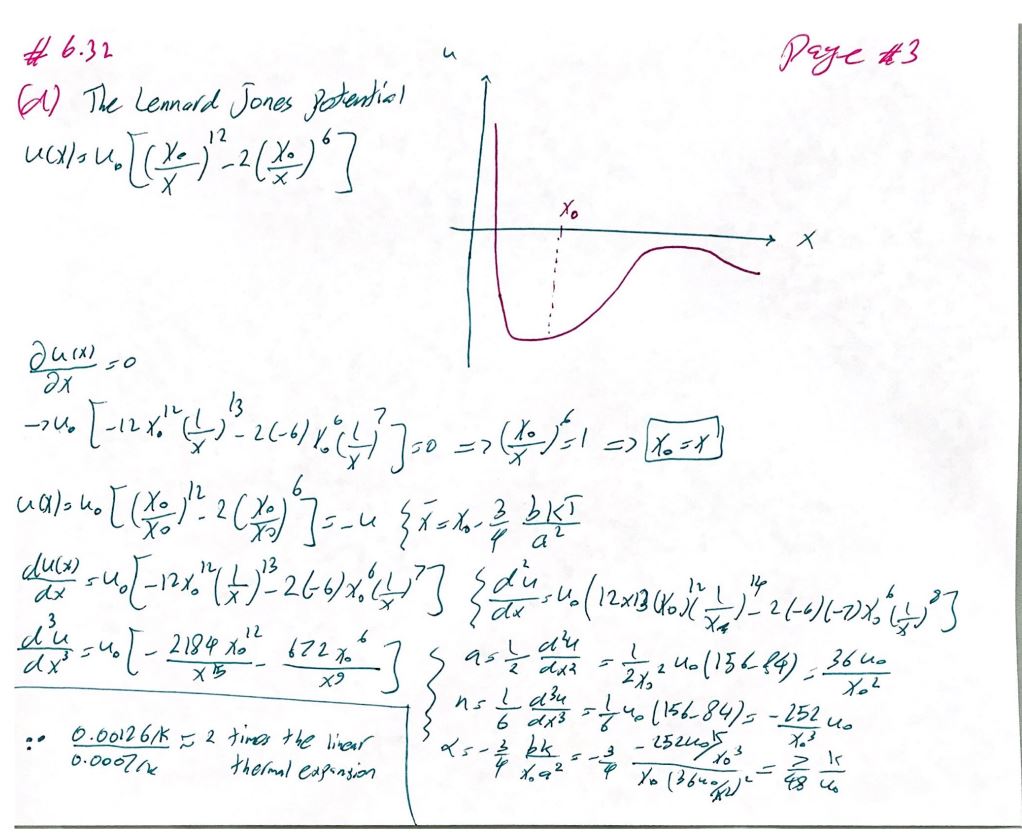 # 6.32
Page #3
(d) The Lennard Jones potential
u(x) = u₀ [(x₀/x)¹² - 2(x₀/x)⁶]
u
x₀
x
∂u(x)/∂x = 0
→ u₀ [-12 x₀¹² (1/x)¹³ - 2(-6) x₀⁶ (1/x)⁷] = 0 => (x₀/x)⁶ = 1 => x₀ = x
u(x) = u₀ [(x₀/x₀)¹² - 2(x₀/x₀)⁶] = -u { x̄ = x₀ - 3/4 bkT/a²
du(x)/dx = u₀ [-12x₀¹² (1/x)¹³ - 2(-6) x₀⁶ (1/x)⁷] { d²u/dx = u₀ (12x13 (x₀)¹² (1/x)¹⁴ - 2(-6)(-7) x₀⁶ (1/x)⁸]
d³u/dx³ = u₀ [- 2184 x₀¹²/x¹⁵ - 672 x₀⁶/x⁹]
{ a = 1/2 d²u/dx² = 1/2x₀² u₀ (156-84) = 36u₀/x₀²
n = 1/6 d³u/dx³ = 1/6 u₀ (156-84) = -252/x₀³ u₀
α = -3/4 bk/x₀a² = -3/4 -252u₀k/x₀³ / x₀(36u₀/x²)² = 7/48 k/u₀
0.00126/k / 0.0007/k ≈ 2 times the linear
thermal expansion